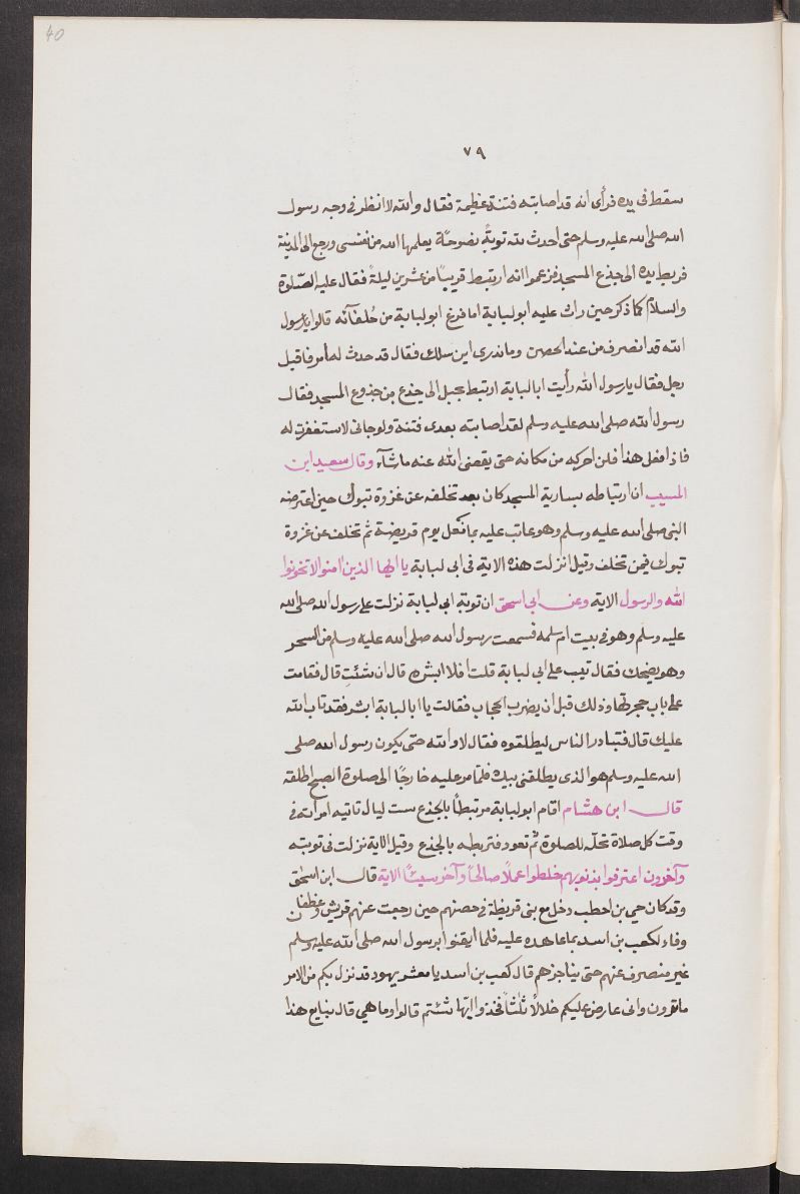 40
٧٩
سقط فى يده فرأى انه قد اصابته فتنة عظيمة فقال والله لا انظر فى وجه رسول
الله صلى الله عليه وسلم حتى احدث لله توبةً نصوحاً يعلمها الله من نفسى ورجع الى المدينة
فربط يده الى جذع المسجد فزعموا انه ارتبط قريباً من عشرين ليلةً فقال عليه الصّلوة
والسلام كما ذكر حين راث عليه ابو لبابة اما فرغ ابو لبابة من حُلفآئه قالوا يا رسول
الله قد انصرف من عند الحصن وما ندرى اين سلك فقال قد حدث له أمر فاقبل
رجل فقال يا رسول الله رأيت ابا لبابة ارتبط بحبل الى جذع من جذوع المسجد فقال
رسول الله صلى الله عليه وسلم لقد اصابته بعدى فتنة ولو جانى لاستغفرت له
فاذا فعل هذا فلن احركه من مكانه حتى يقضى الله عنه ما شآء وقال سعيد ابن
المسيب ان ارتباطه بسارية المسجد كان بعد تخلفه عن غزوة تبوك حين اعترضه
النبى صلى الله عليه وسلم وهو عاتب عليه بما فعل يوم قريضة ثم تخلف عن غزوة
تبوك فيمن تخلف وقيل انزلت هذه الاية فى ابى لبابة يا ايها الذين امنوا لا تخونوا
الله والرسول الاية وعن ابى اسحق ان توبة ابى لبابة نزلت على رسول الله صلى الله
عليه وسلم وهو فى بيت ام سلمه فسمعت رسول الله صلى الله عليه وسلم من السحر
وهو يضحك فقال تيب على ابى لبابة قلت افلا ابشره قال ان شئتِ قال فقامت
على باب حجرتها وذلك قبل ان يضرب الحجاب فقالت يا ابا لبابة ابشر فقد تاب الله
عليك قال فتبادر الناس ليطلقوه فقال لا والله حتى يكون رسول الله صلى
الله عليه وسلم هو الذى يطلقنى بيده فلما مر عليه خارجًا الى صلوة الصبح اطلقه
قال ابن هشام اقام ابو لبابة مرتبطاً بالجذع ست ليال تاتيه امراته فى
وقت كل صلاة تحلّه للصلوة ثم تعود فتربطه بالجذع وقيل الاية نزلت فى توبته
وآخرون اعترفوا بذنوبهم خلطوا عملاً صالحاً وآخر سيئًا الاية قال ابن اسحٰق
وقد كان حي بن اخطب دخل مع بنى قريظة فى حصنهم حين رجعت عنهم قريش وغطفان
وفاء لكعب بن اسد بما عاهده عليه فلما ايقنوا برسول الله صلى الله عليه وسلم
غير منصرف عنهم حتى يناجزهم قال كعب بن اسد يا معشر يهود قد نزل بكم من الامر
ما ترون وانى عارض عليكم خلالاً ثلٰثاً فخذوا ايّها شئتم قالوا وما هي قال نبايع هذا